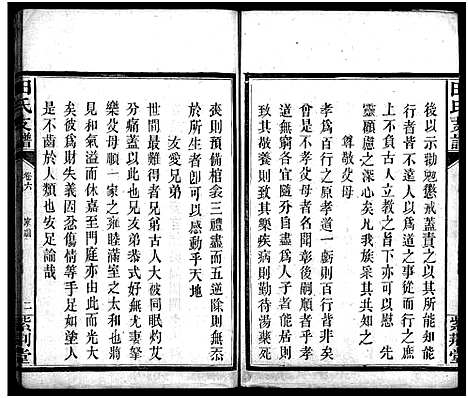 田氏支譜
後以示勸懲戒蓋責之以身體力
行者皆不違人以爲道之事而人
上不負古人立教之功下以慰先
靈顧慮之深心矣凡我族衆其
尊敬父母
孝爲百行之原孝道一虧則百行皆非矣
曾是不孝父母者名聞彰後嗣順者乎孝
親窮約各宜隨分自盡爲人子者居則
致其敬養則致其樂疾病則勤待湯藥死
紫荆堂
喪則預備棺衾三禮盡而五逆除則無忝
於所生者卽可以感動乎天地
友愛兄弟
世間最難得者兄弟古人大被同眠灼艾
分痛友愛以此兄友弟恭式好無尤妻孥
樂父母順一家之雍睦滿室之太和也將
見和氣溢而休嘉至門庭亦由此而光大
矣彼爲財失義因忿傷情等手足如塗人
是不齒於人類也安足論哉
田氏支譜
卷六
家訓
二
紫荆堂